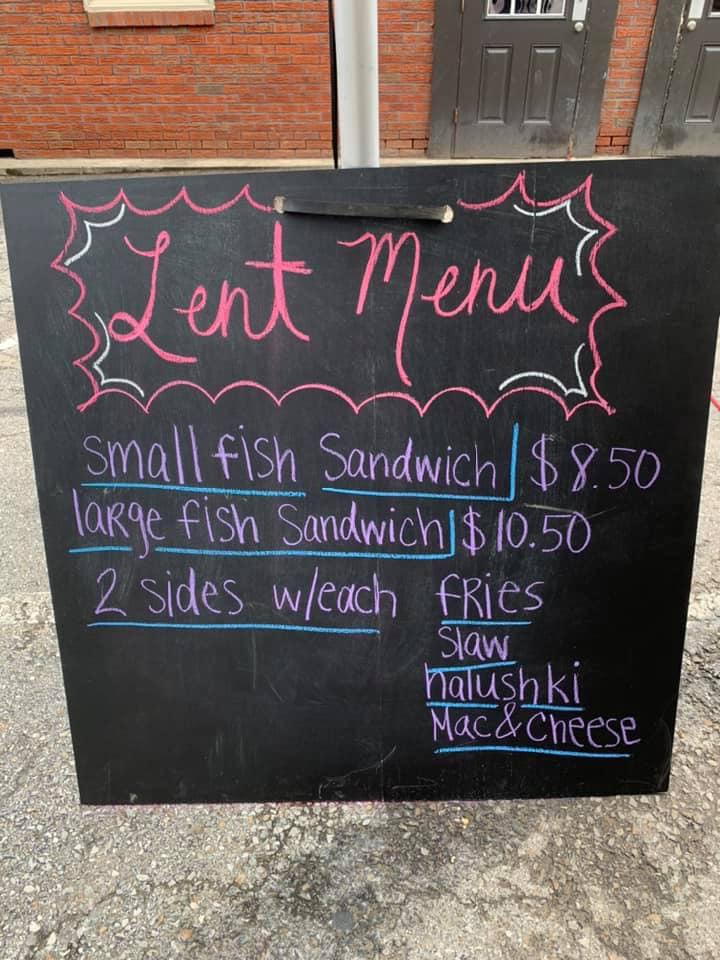 Lent Menu
small fish Sandwich $8.50
large fish Sandwich $10.50
2 sides w/each fries
Slaw
halushki
Mac & Cheese